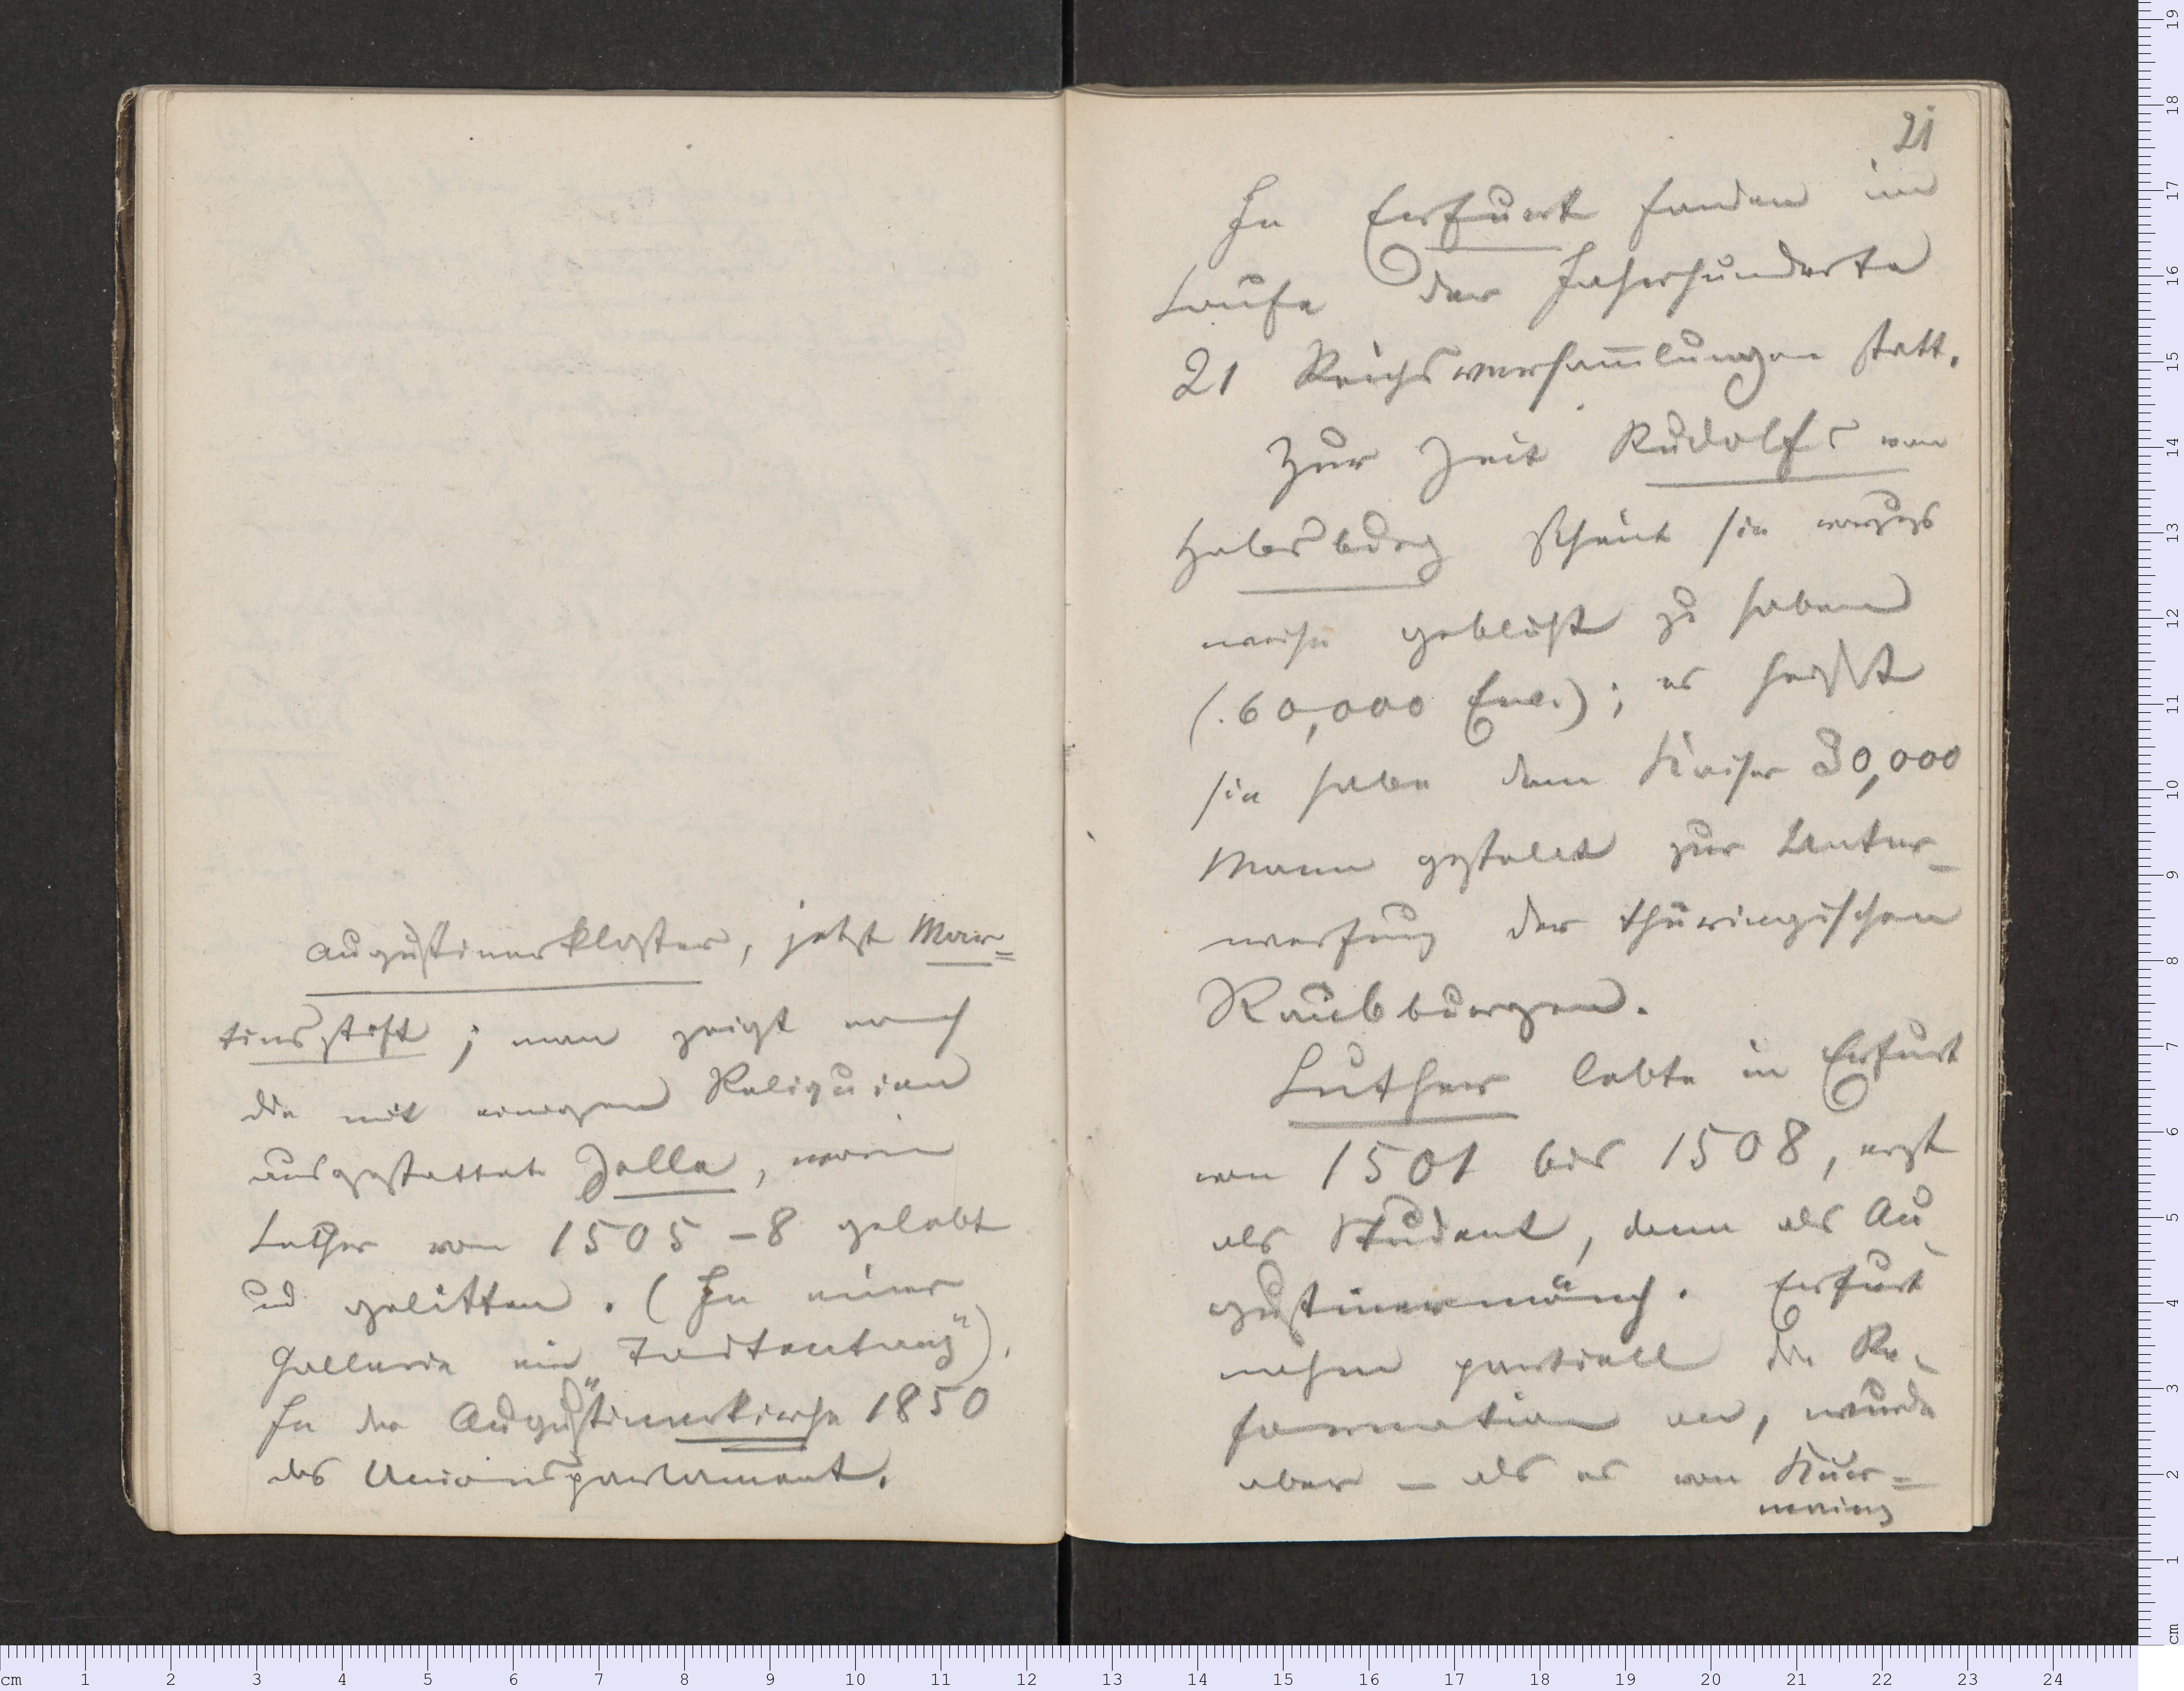 Augustinerkloster, jetzt Mar=
tinsstift; man zeigt noch
die mit einigen Reliquien
ausgestattete Zelle, worin
Luther von 1505–8 gelebt
und gelitten. (In einer
Gallerie ein „Todtentanz“).
In der Augustinerkirche 1850
das Unionsparlament.
21
In Erfurt fanden im
Laufe der Jahrhunderte
21 Reichsversam̄lungen statt.
Zur Zeit Rudolfs von
Habsburg scheint sie
weise geblüht zu haben
(.60,000 Einw.); es heißt
sie habe dem Kaiser 30,000
Mann gestellt zur Unter-
werfung der thüringischen
Raubburgen.
Luther lebte in Erfurt
von 1501 bis 1508, erst
als Student, dann als Au-
gustinermönch. Erfurt
nahm partiell die Re-
formation an, wurde
aber – als es von Kur=
mainz